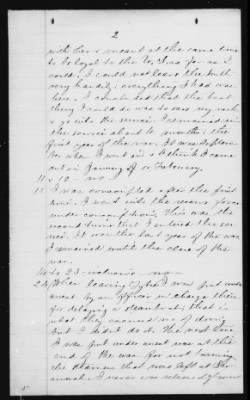 2
with hers meant at the same time
to be loyal to the U.S. as far as I
could. I could not leave the south
very handily; everything I had was
here. I concluded that the best
thing I could do was to save my neck
& go into the service. I remained in
the service about 4 months; the
first year of the war. It was
when I went in & I think I came
out in January or February.
11 & 12 - no -
13 I was conscripted after the first
time. I went into the reserve force
under conscription. This was the
second time that I entered the ser-
vice. It was the last year of the war.
I remained until the close of the
war.
14 to 23 - nothing - no -
24 After leaving I was put under
arrest by an officer in charge there
for delaying a steamboat; that is
what they accused me of doing
but I didn't do it. The next time
I was put under arrest was at the
end of the war for not burning
the steamer that was left at
I never was released